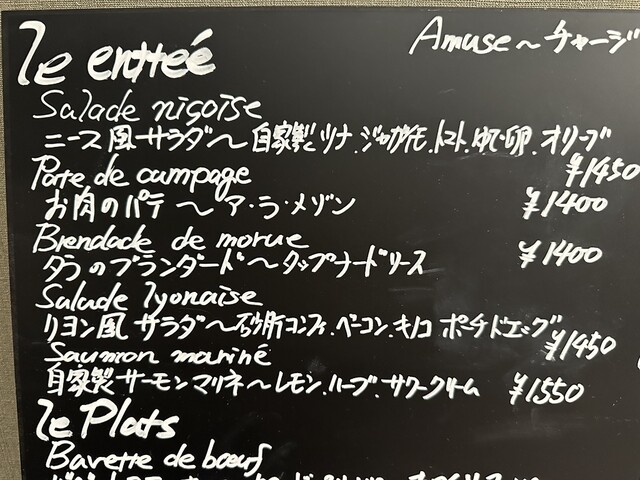 le entreé
Amuse～チャージ
Salade niçoise
ニース風サラダ～自家製ツナ.ジャガイモ.トマト.ゆで卵.オリーブ
¥1450
Pate de campagne
お肉のパテ～ア・ラ・メゾン ¥1400
Brendade de morue
タラのブランダード～タップナードソース ¥1400
Salade lyonaise
リヨン風サラダ～砂肝コンフィ.ベーコン.キノコ ポーチドエッグ
¥1450
Saumon mariné
自家製サーモンマリネ～レモン.ハーブ.サワークリーム ¥1550
le Plats
Bavette de bœuf